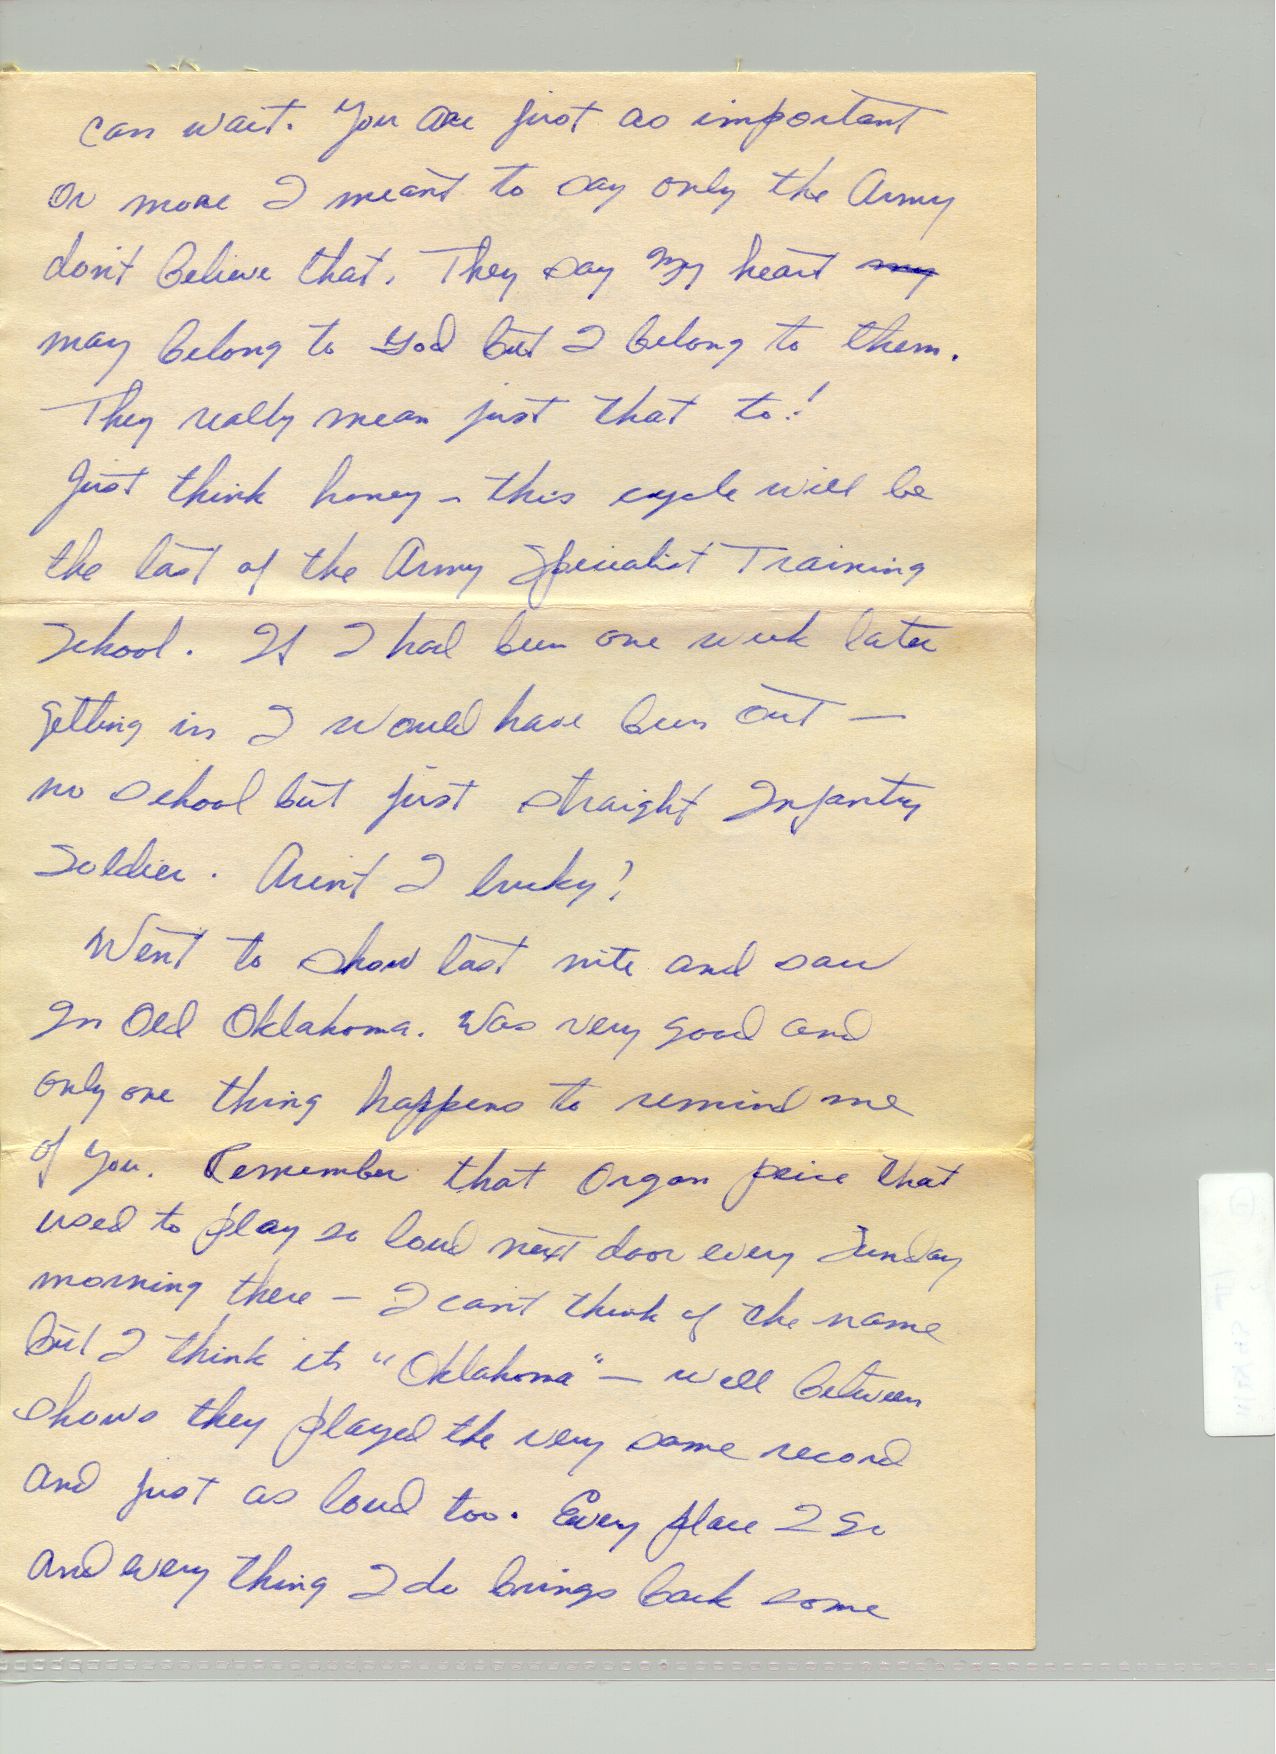 can wait. You are just as important
or more I meant to say only the Army
don't believe that. They say my heart my
may belong to God but I belong to them.
They really mean just that to!
Just think honey – this cycle will be
the last of the Army Specialist Training
School. If I had been one week later
getting in I would have been out —
no school but just straight Infantry
Soldier. Arin't I lucky?
Went to show last nite and saw
In Old Oklahoma. Was very good and
only one thing happens to remind me
of you. Remember that organ peice that
used to play so loud next door every Sunday
morning there – I can't think of the name
but I think its "Oklahoma" – well between
shows they played the very same record
and just as loud too. Every place I go
and every thing I do brings back some